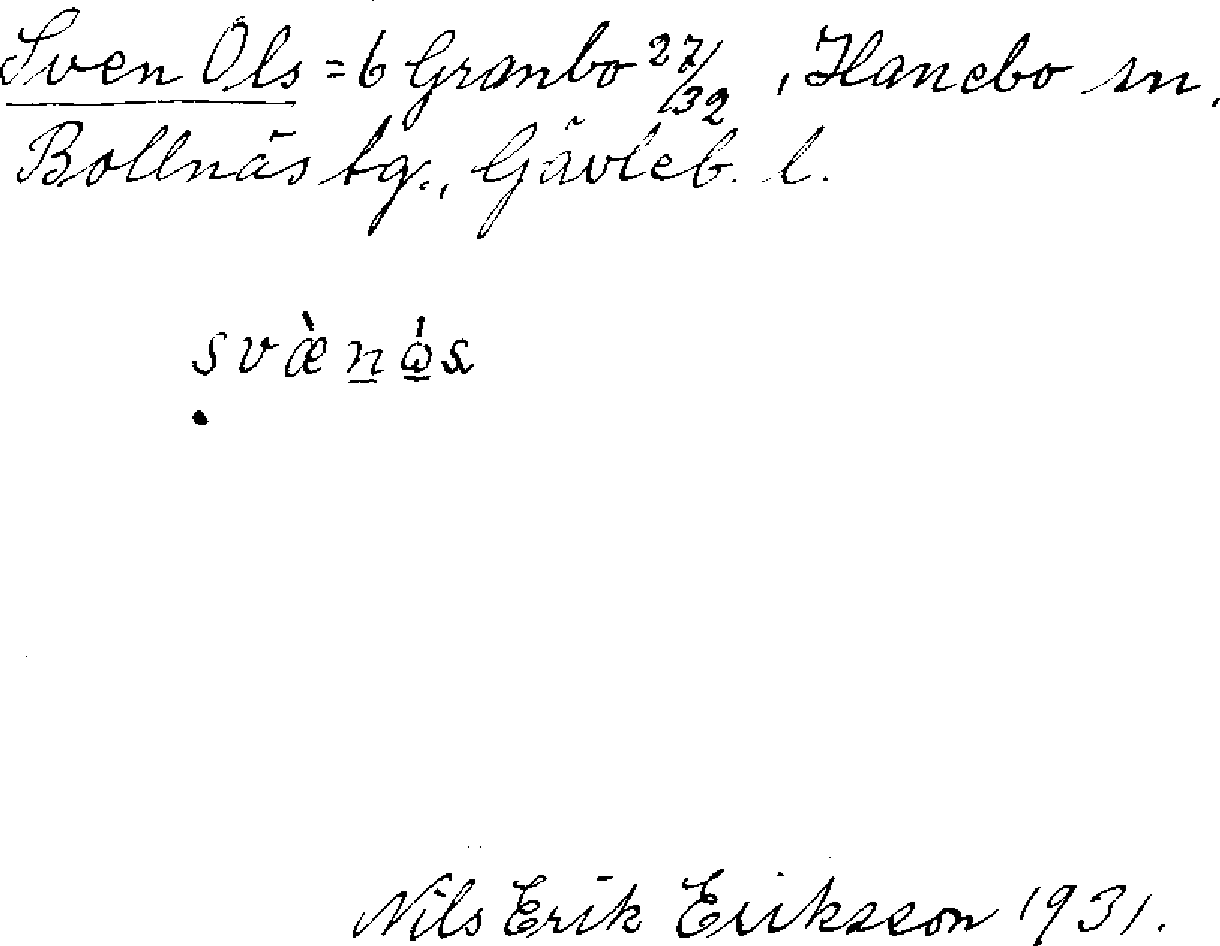 Sven Ols = 6 Granbo 27/32, Hanebo sn,
Bollnäs tg., Gävleb. l.
svæ̀n̲ó̲s
Nils Erik Eriksson 1931.